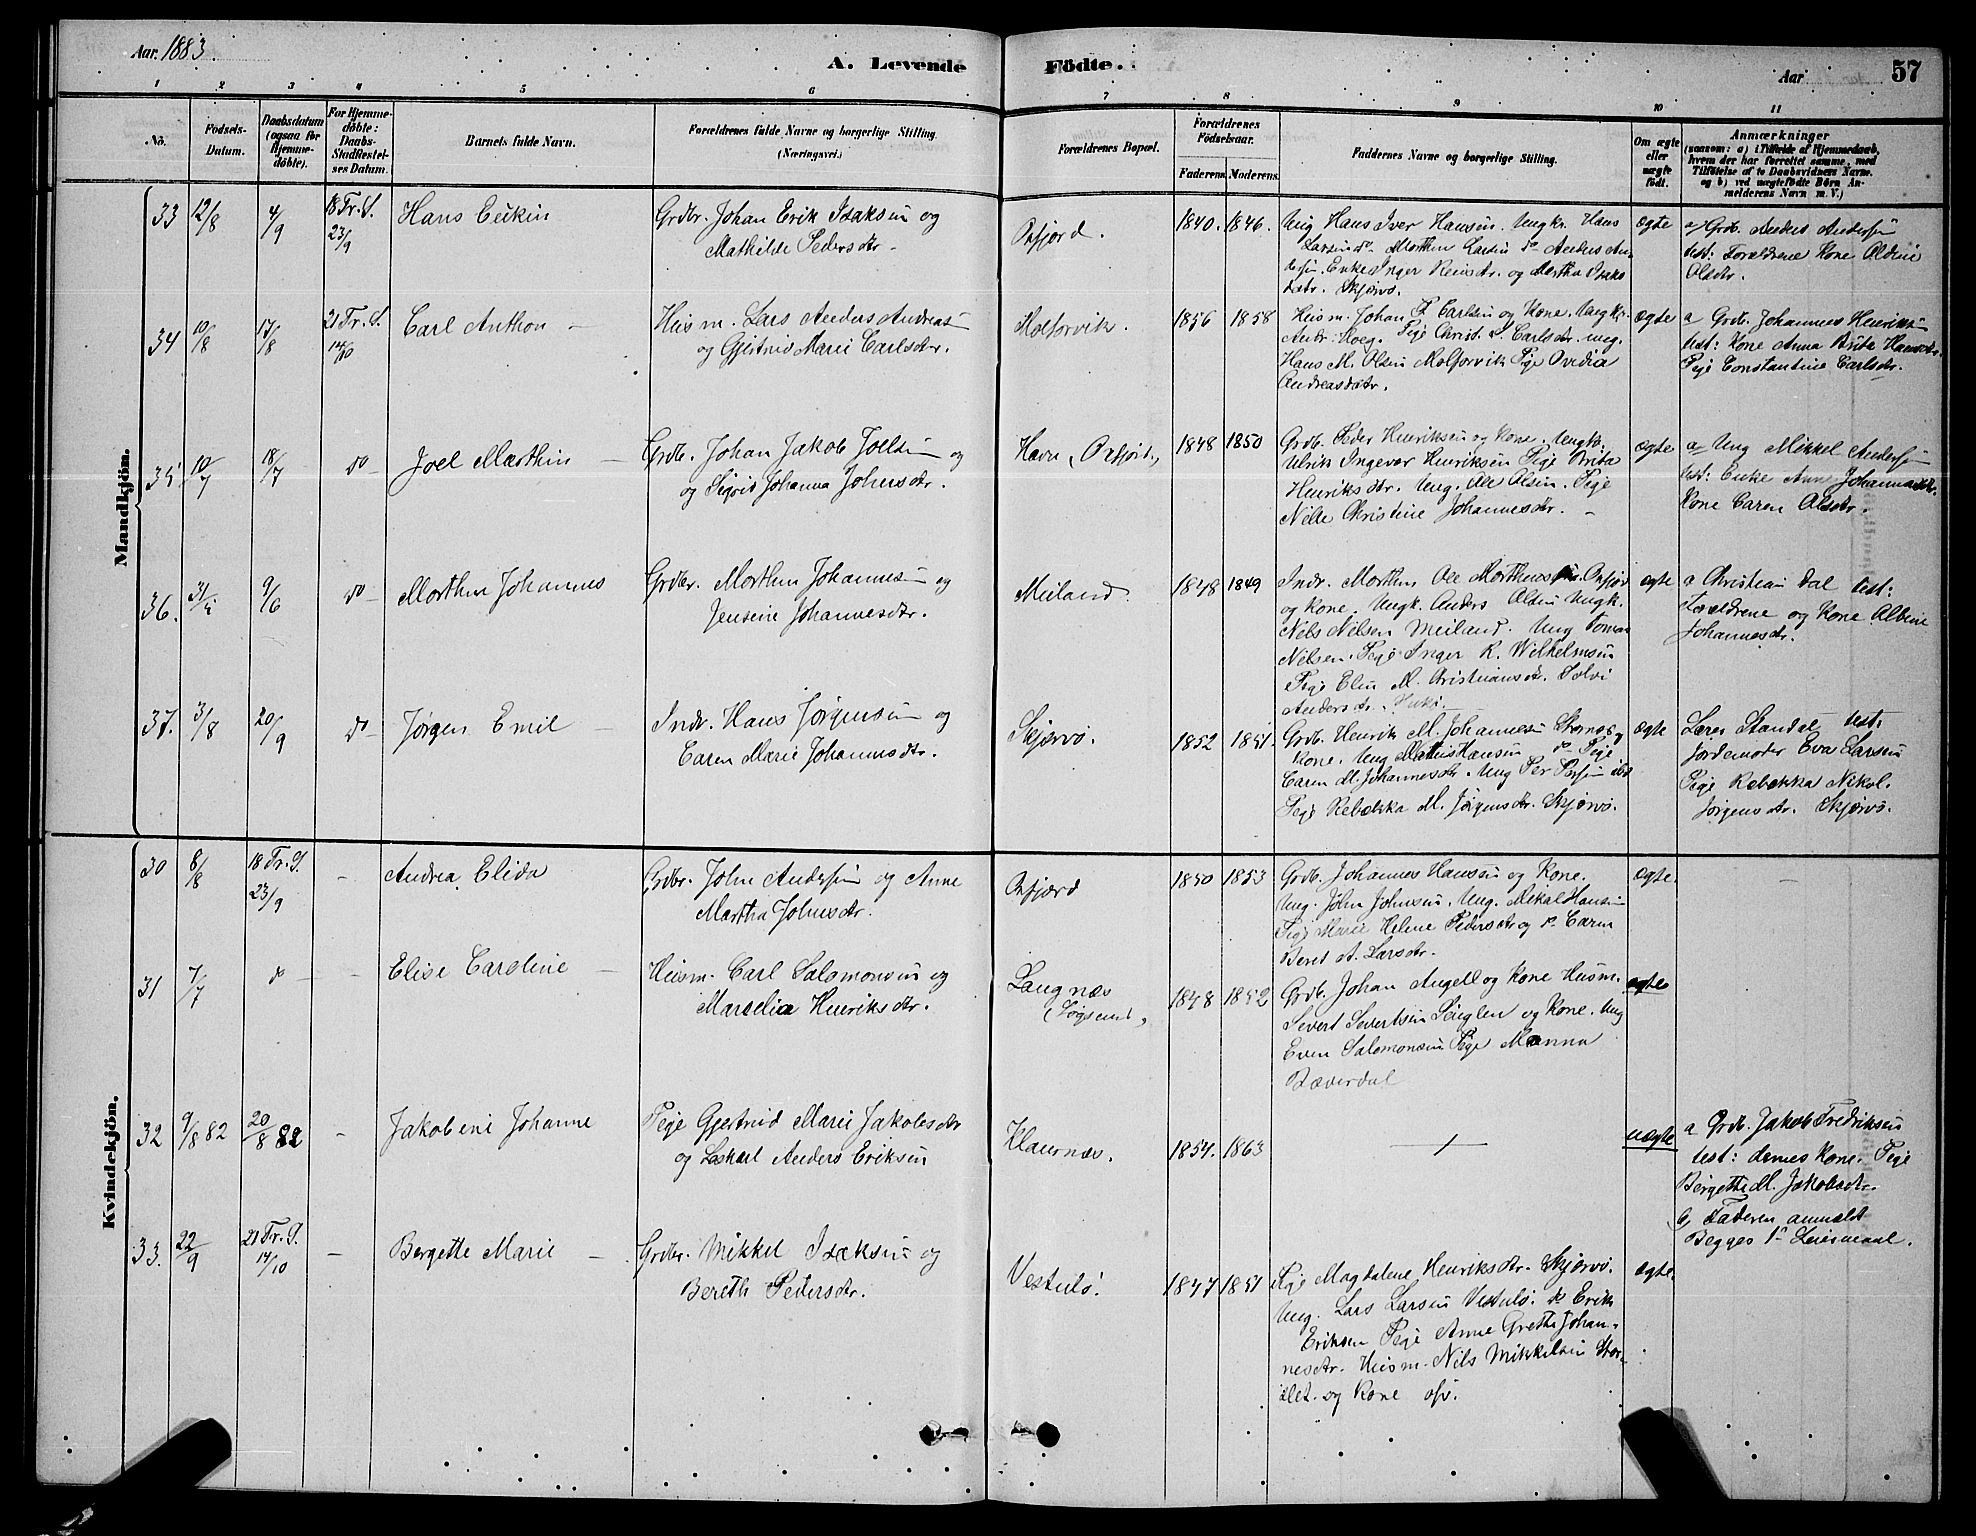 Aar. 1883.
A. Levende Födte.
Aar 57
1 2 3 4 5 6 7 8 9 10 11
No.
Födsels-Datum.
Daabsdatum (ogsaa for Hjemme-döbte).
For Hjemme-döbte: Daabs-Stadfæstel-ses Datum.
Barnets fulde Navn.
Forældrenes fulde Navne og borgerlige Stilling. (Næringsvei.)
Forældrenes Bopæl.
Forældrenes Födselsaar.
Faderens. Moderens.
Faddernes Navne og borgerlige Stilling.
Om ægte eller uægte födt.
Anmærkninger
(saasom: a) i Tilfælde af Hjemmedaab, hvem der har forrettet samme, med Tilföielse af to Daabsvidners Navne. og b) ved uægtefödte Börn An-melderens Navn m. V.)
Mandkjön.
33 12/8 4/9 18 Tr. S. 23/9 Hans
Grdbr. Johan Erik Isaksen og
Mathilde Pedersdtr.
Oxfjord. 1840. 1846.
Ung Hans Iver Hansen. Ungkr. Hans
Larsen do Morthen Larsen do Anders An-
dersen. Enke Inger og Martha Isaks
datr. Skjervö.
ægte
a Grdb. Anders Andersen
test: Forældrene Kone Aldine
Olsdtr.
34 10/8 17/8 21 Tr. S. 14/10 Carl Anthon
Husm. Lars Anders Andreas
og Gjertrud Marie Carlsdtr.
Molforvik. 1856 1858
Husm. Johan P. Carlsen og Kone. Ungkr.
Andr. Hoeg. Pige Christ. S. Carlsdtr. ung.
Hans M. Olsen Molforvik Pige Ovidia
Andreasdatr.
ægte
a Grdb. Johannes Henriksen
test: Kone Anna Brita Hansdtr.
Pige Constantine Carlsdtr.
35 10/7 18/7 do Joel Marthin
Grdbr. Johan Jakob Joelsen og
og Sigrid Johanna Johnsdtr.
Havn, Oxfjord, 1848 1850
Grdb. Peder Henriksen og Kone. Ungk.
Ulrik Ingevar Henriksen Pige Brita
Henriksdtr. Ung. Ole Olsen. Pige
Nille Christine Johannesdtr.
ægte
a Ung Mikkel Andersen
test: Enke Anne Johannesdtr.
Kone Caren Olsdtr.
36. 31/5 9/6 do Morthen Johannes
Grdbr. Morthen Johannesen og
Jensine Johannesdtr.
Meiland. 1848 1849
Indr. Morthen Ole Morthensen. Oxfjord
og Kone. Ungk. Anders Olsen Ungk.
Nels Nelsen Meiland. Ung Tomas
Nilsen. Pige Inger K. Wilhelmsen
Pige Elen M. Cristiansdr. Solvi
Andersdtr.
ægte
a Christian Dal test:
Forældrene og Kone Albine
Johannesdtr.
37. 31/8 20/9 do Jørgen Emil
Indr. Hans Jørgensen og
Caren Marie Johannesdtr.
Skjervö. 1852 1851.
Grdb. Henrik M. Johannesen og
Kone. Ung Mathis Hansen do Pige
Caren M. Johannesdtr. Ung Per
Pige Rebekka M. Jörgensdtr. Skjervö.
ægte
Lærer Standal test:
Jordemoder Eva Larsen
Pige Rebekka Nikol.
Jörgensdtr. Skjervö.
Kvindekjön.
30 8/8 18 Tr. S. 23/9 - Andrea Elida
Grdbr. John Andersen og Anne
Martha Johnsdtr.
Oxfjord 1850 1853
Grdb. Johannes Hansen og Kone.
Ung. John Johnsen. Ung. Mikal Hansen
Pige Marie Helene Pedersdtr og do Caren
Beret A. Larsdtr.
ægte.
31 7/7 do - Elise Caroline
Husm. Carl Salomonsen og
Marselia Henriksdtr.
Langnæs
(Løgsund, 1848 1852
Grdb. Johan Angell og Kone Husm.
Sivert Sivertsen og Kone. Ung
Even Salomonsen Pige Manna
Bæverdal
ægte
32 9/8 82 20/8 82 - Jakobine Johanne
Pige Gjertrud Marie Jakobsdtr
og Anders Eriksen
Hamnæs. 1854. 1863
uægte
a Grdb. Jakob Fredriksen
test: dennes Kone. Pige
Bergette M. Jakobsdtr.
b, Faderen anmeldt
Begges 1ste Leiermaal.
33. 22/9 21 Tr. S. 14/10 - Bergette Marie
Grdbr. Mikkel Isaksen og
Bereth Petersdtr.
1847 1851
Pige Magdalene Henriksdtr. Skjervö.
Ung. Lars Larsen do Erik
Eriksen Pige Anne Grethe Johan-
nesdtr. Husm. Nils Mikkelsen Stor-
slet. og Kone
ægte.